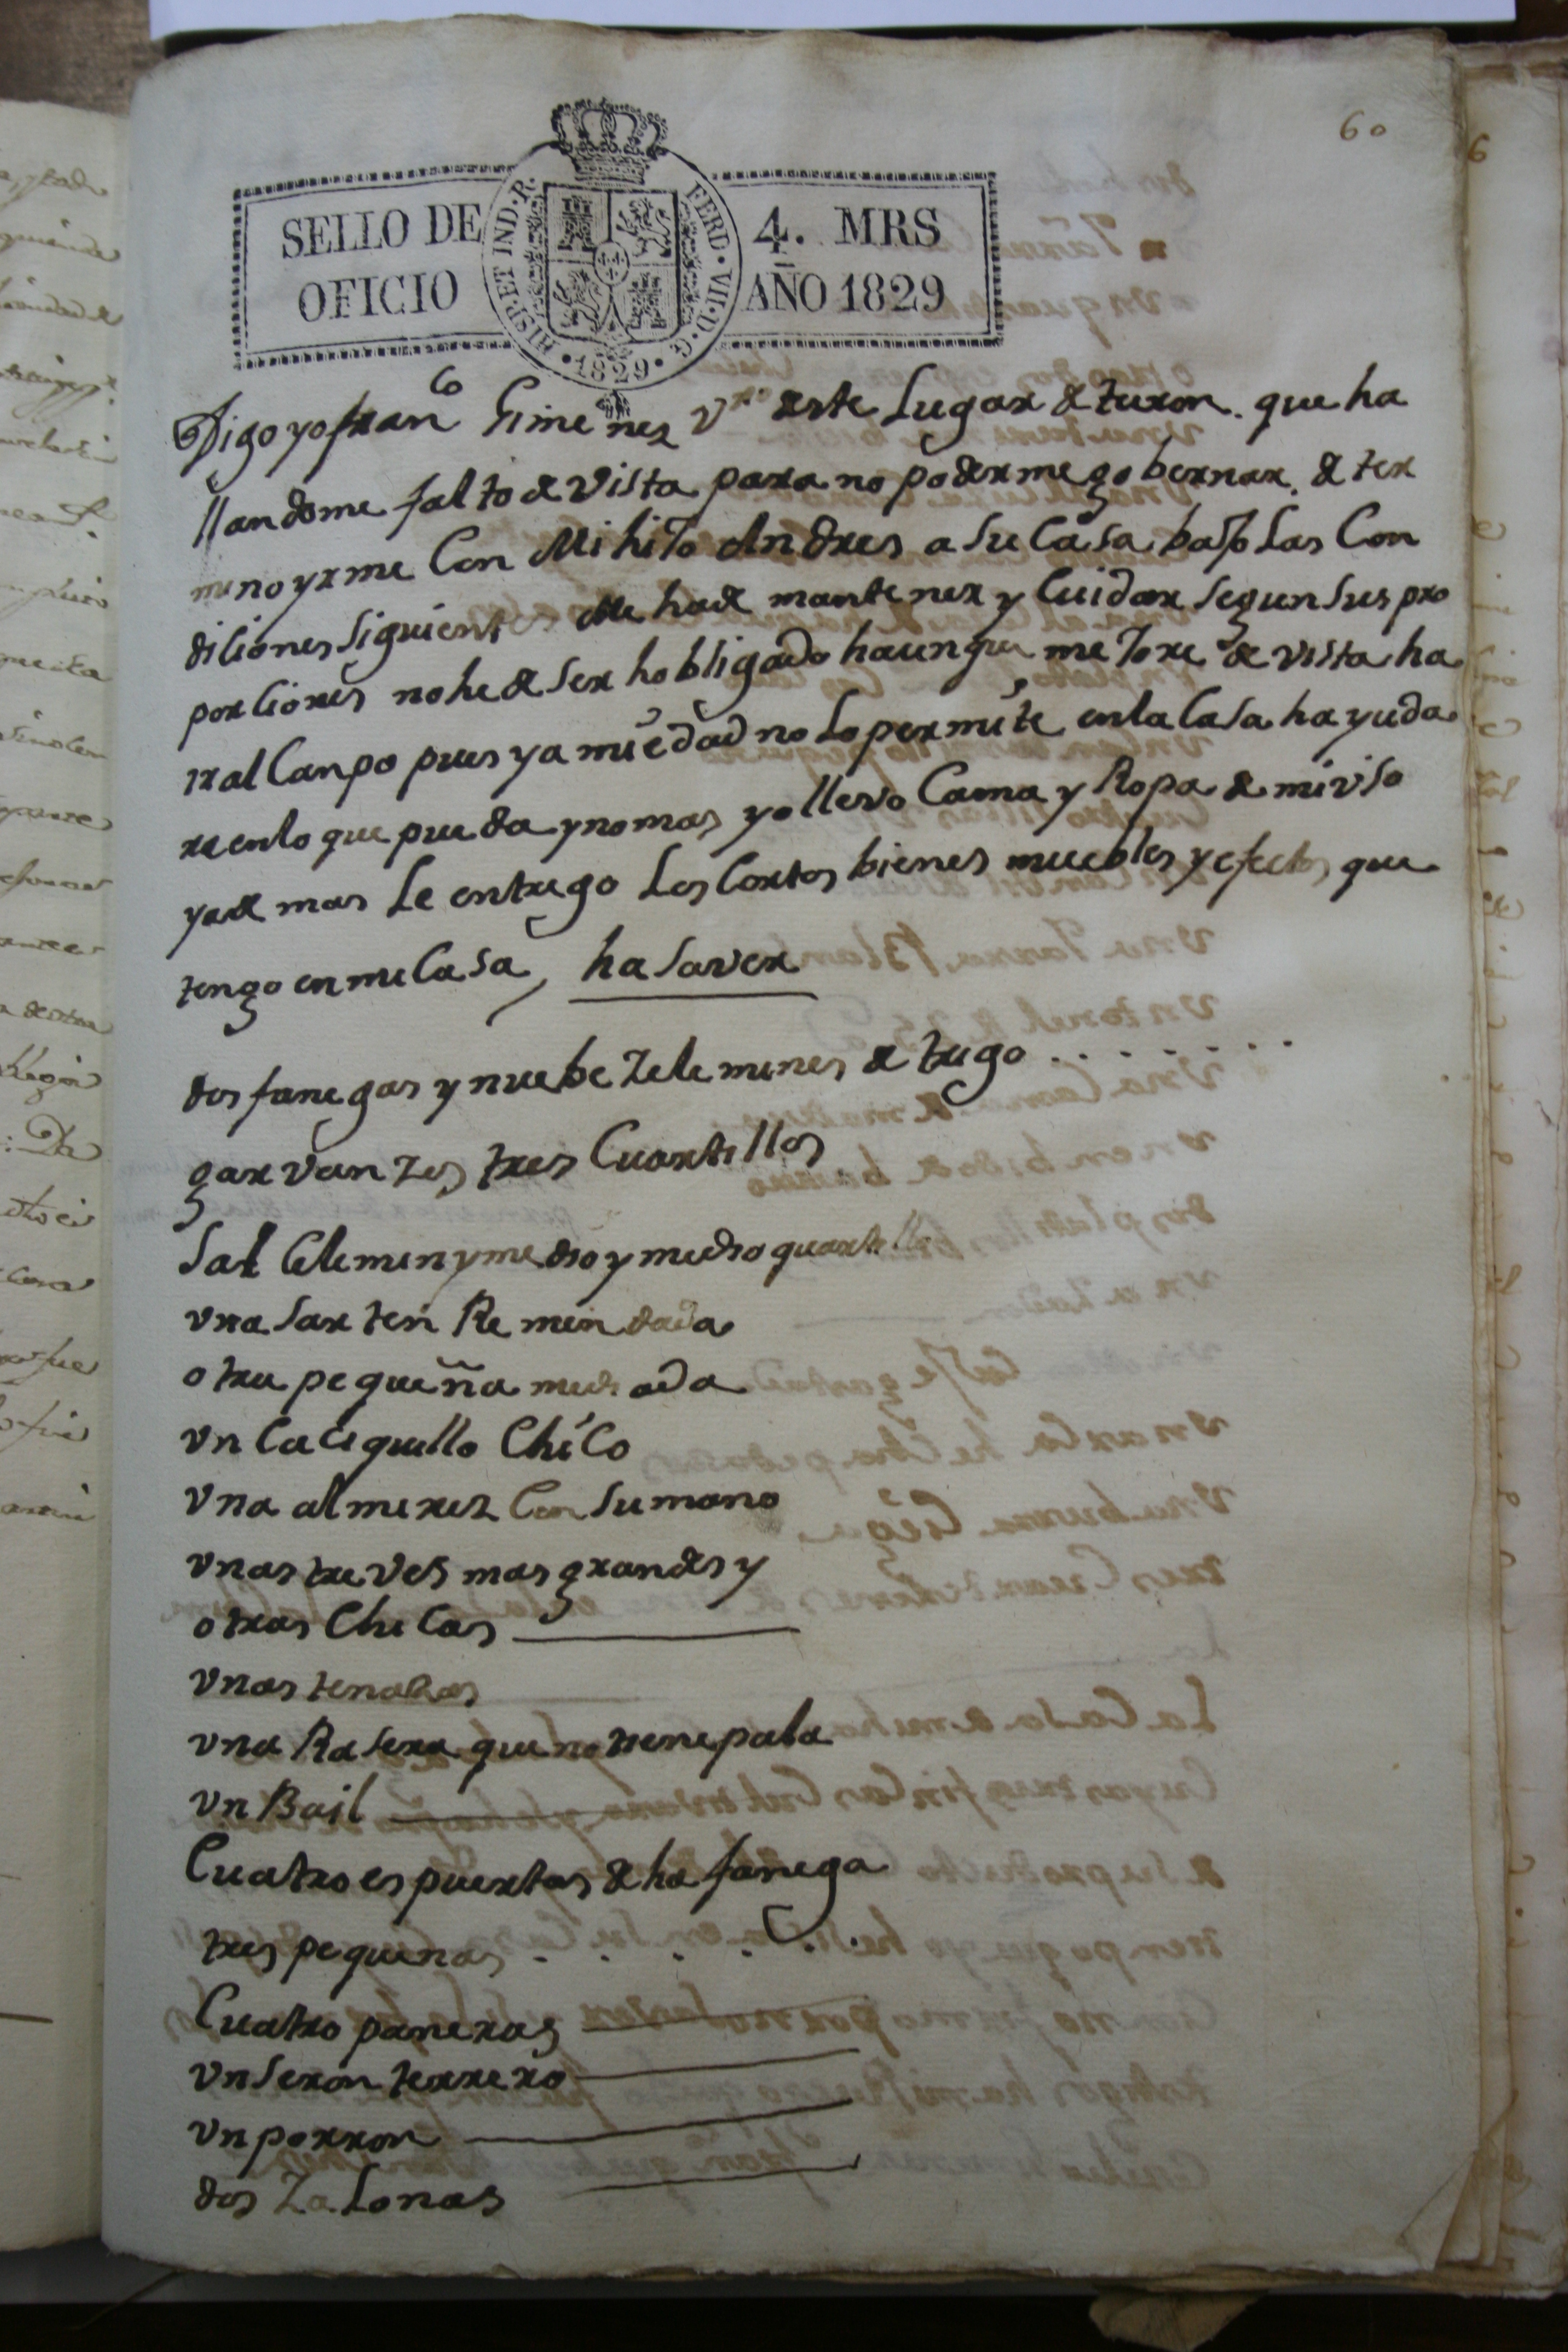 60
SELLO DE OFICIO
4. MRS AÑO 1829
HISP. ET IND. R. FERD. VII. D. G. 1829
Digo yo fran.co Gimenez v.no deste Lugar de turon. que ha
llandome falto de vista para no podermegobernar. deter
mino yrme Con Mi hijo Andres a su Casa, bajo Las Con
diciones siguientes Me hade mantener y Cuidar segun sus pro
porciones no he de ser hobligado haunque mejore de vista ha
ir al Canpo pues ya mi edad no lo permite en la Casa hayuda
re en lo que pueda y no mas yo llevo Cama y Ropa de mi viso
y ade mas Le entrego Los Cortos bienes muebles y efectos que
tengo en mi Casa, ha saver
dos fanegas y nuebe Zelemines de trigo . . . . . . . .
garvanzes tres Cuartillos
Sal Celemin y medio y medio quartillo
vna sarten Remendada
otra pequeña mediada
vn Caciquillo Chico
vna almirez Con su mano
vnas treves mas grandes y
otras Chicas
vnas tenazas
vna Rasera que no tiene pala
vn Bail
Cuatro espuertas de ha fanega
tres pequenas . . . . . .
Cuatro paneras
vn seron terrero
vn porron
dos Zalonas